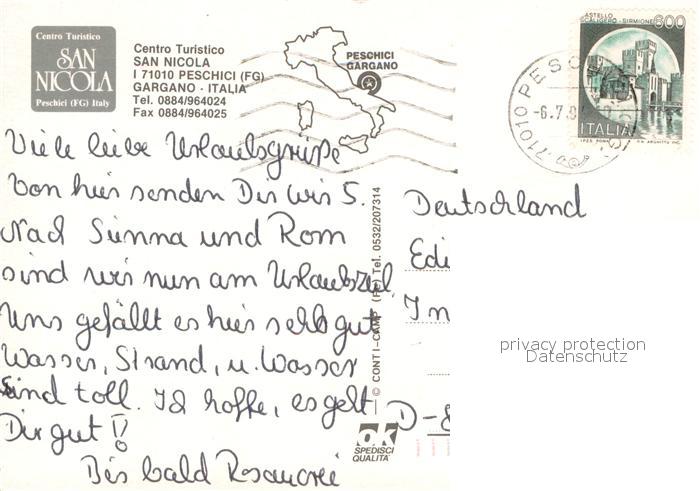 Centro Turistico
SAN
NICOLA
Peschici (FG) Italy
Centro Turistico
SAN NICOLA
I 71010 PESCHICI (FG)
GARGANO - ITALIA
Tel. 0884/964024
Fax 0884/964025
PESCHICI
GARGANO
CASTELLO
SCALIGERO - SIRMIONE
600
ITALIA
71010 PESC
-6.7.9
Viele liebe Urlaubsgrüße
Von hier senden Dir wir 5.
Nach Sienna und Rom
sind wir nun am Urlaubsziel
Uns gefällt es hier sehr gut
Wasser, Strand, u. Wasser
sind toll. Ich hoffe, es geht
Dir gut!!
Bis bald Rosemarie
© CONTI-CAMP (FE) Tel. 0532/207314
ok
SPEDISCI
QUALITA'
Deutschland
Edi
Im
D-8
privacy protection
Datenschutz